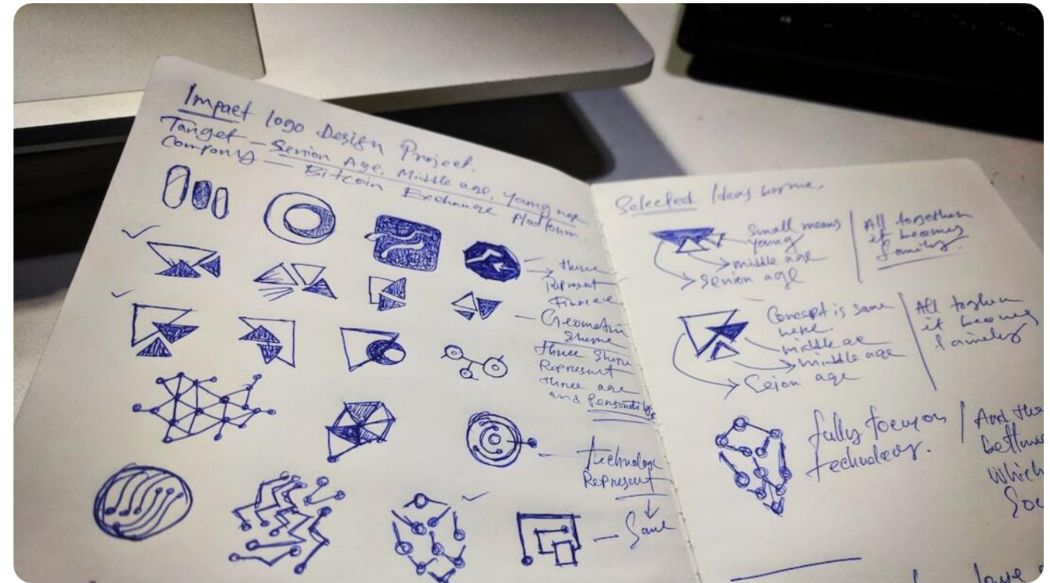 Impact logo Design Project.
Target — Senior Age, Middle age, Young age
Company — Bitcoin Exchange Platform.
three
Represent
Finance
— Geometric
Shape
three Shape
Represent
three age
and
— technology
Represent
— Same
Selected Ideas
small means
young
middle age
Senior age
All together
it becomes
family.
Concept is same
here.
middle ae
middle age
Seion age
All togther
it becomes
family
fully focus on
technology.
And the
which